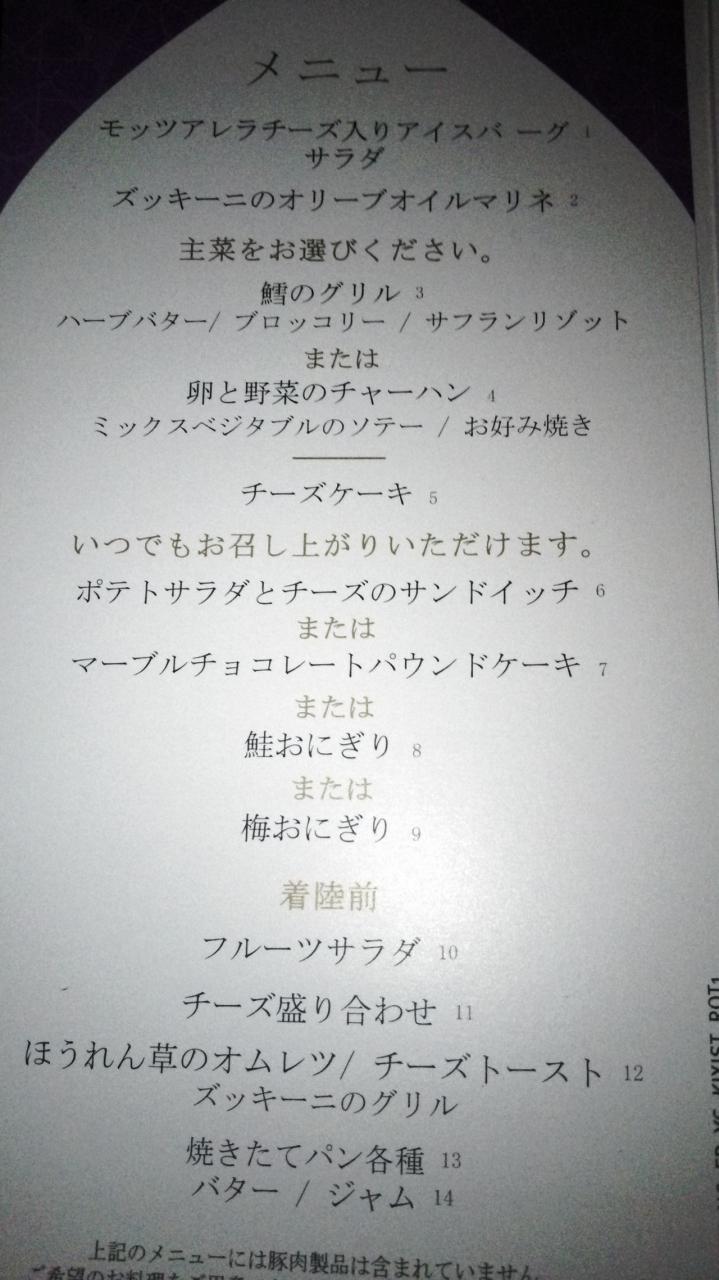 メニュー
モッツアレラチーズ入りアイスバ ーグ 1
サラダ
ズッキーニのオリーブオイルマリネ 2
主菜をお選びください。
鱈のグリル 3
ハーブバター/ ブロッコリー / サフランリゾット
または
卵と野菜のチャーハン 4
ミックスベジタブルのソテー / お好み焼き
チーズケーキ 5
いつでもお召し上がりいただけます。
ポテトサラダとチーズのサンドイッチ 6
または
マーブルチョコレートパウンドケーキ 7
または
鮭おにぎり 8
または
梅おにぎり 9
着陸前
フルーツサラダ 10
チーズ盛り合わせ 11
ほうれん草のオムレツ/ チーズトースト 12
ズッキーニのグリル
焼きたてパン各種 13
バター / ジャム 14
上記のメニューには豚肉製品は含まれていません
ご希望のお料理をご用意